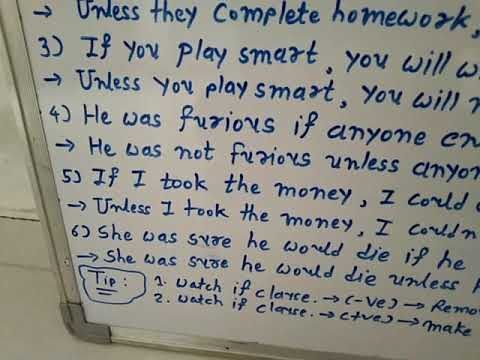 → Unless they complete homework,
3) If you play smart, you will
→ Unless you play smart, you will
4) He was furious if anyone
→ He was not furious unless
5) If I took the money, I could
→ Unless I took the money, I
6) She was sure he would die if he
→ She was sure he would die unless
Tip: 1. watch if clause. → (-ve) →
2. watch if clause. → (+ve) → make